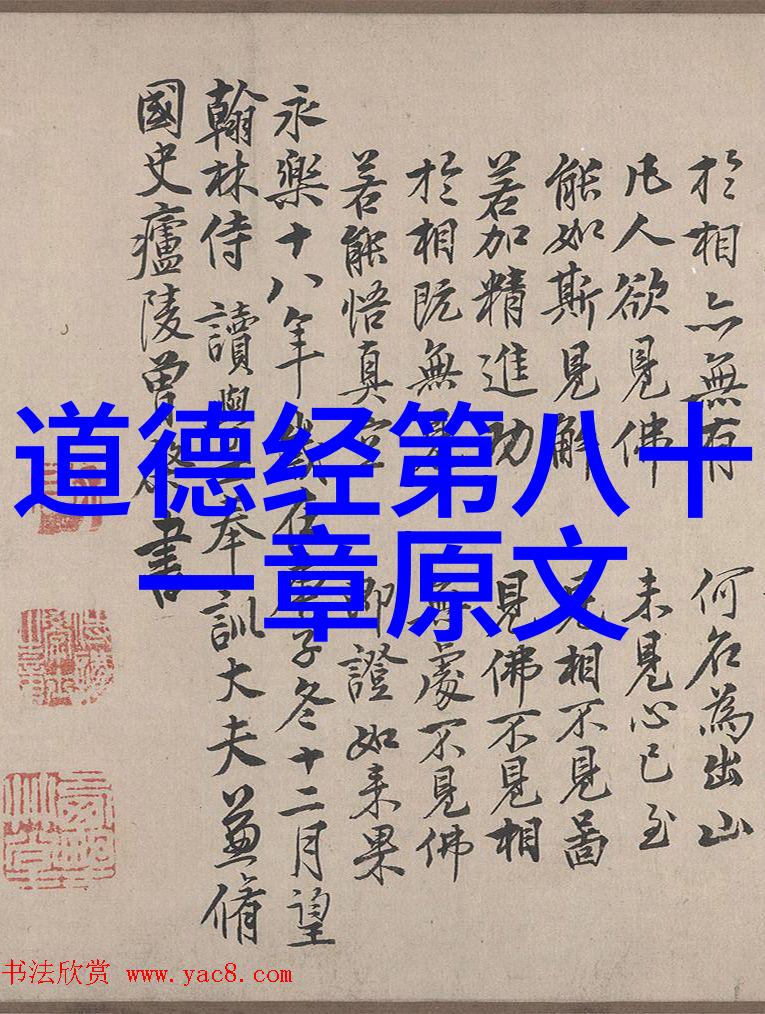 道德经第八十
一章原文
於相亦無有 何名為出山
凡人欲見佛 未見心已至
能如斯見解 見相不見啚
若加精進功 見佛不見相
於相既無見 無處不見佛
若能悟真空 即證如来果
永樂十八年歲在庚子冬十二月望
翰林侍讀學奉訓大夫兼脩
國史廬陵曾棨書
书法欣赏 www.yac8.com